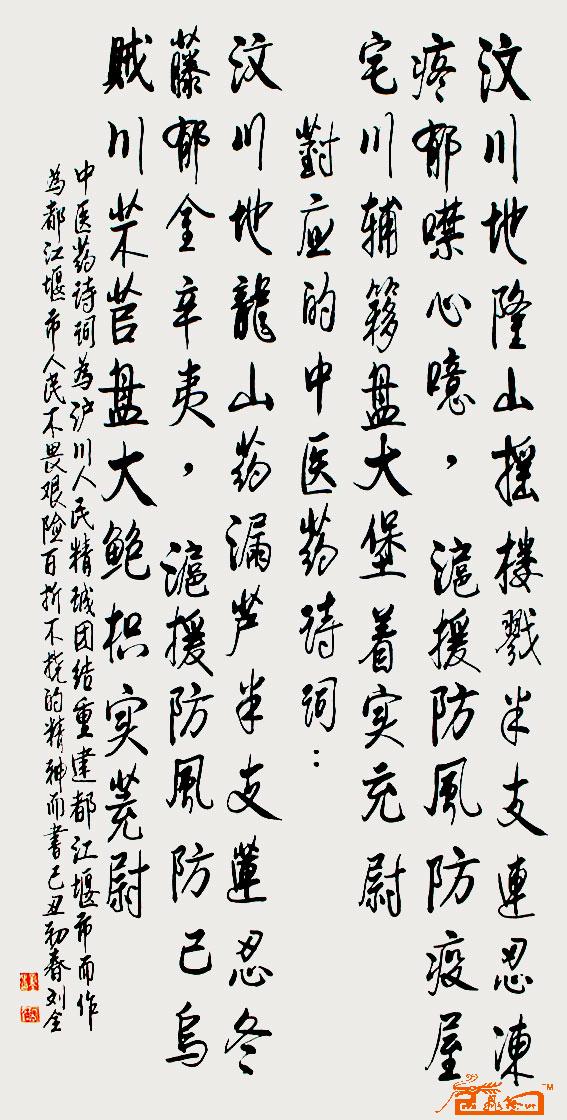 汶川地隆山摇楼戮半支連忍凍
疼郁噤心噫，滬援防風防疫屋
宅川辅簃盘大堡着实充尉
對应的中医药诗词：
汶川地龍山药漏芦半支蓮忍冬
藤郁金辛夷，滬援防風防己烏
贼川芣苢盘大鲍枳实茺尉
中医药诗词為沪川人民精诚团结重建都江堰市而作
為都江堰市人民不畏艰險百折不挠的精神而書己丑初春刘全